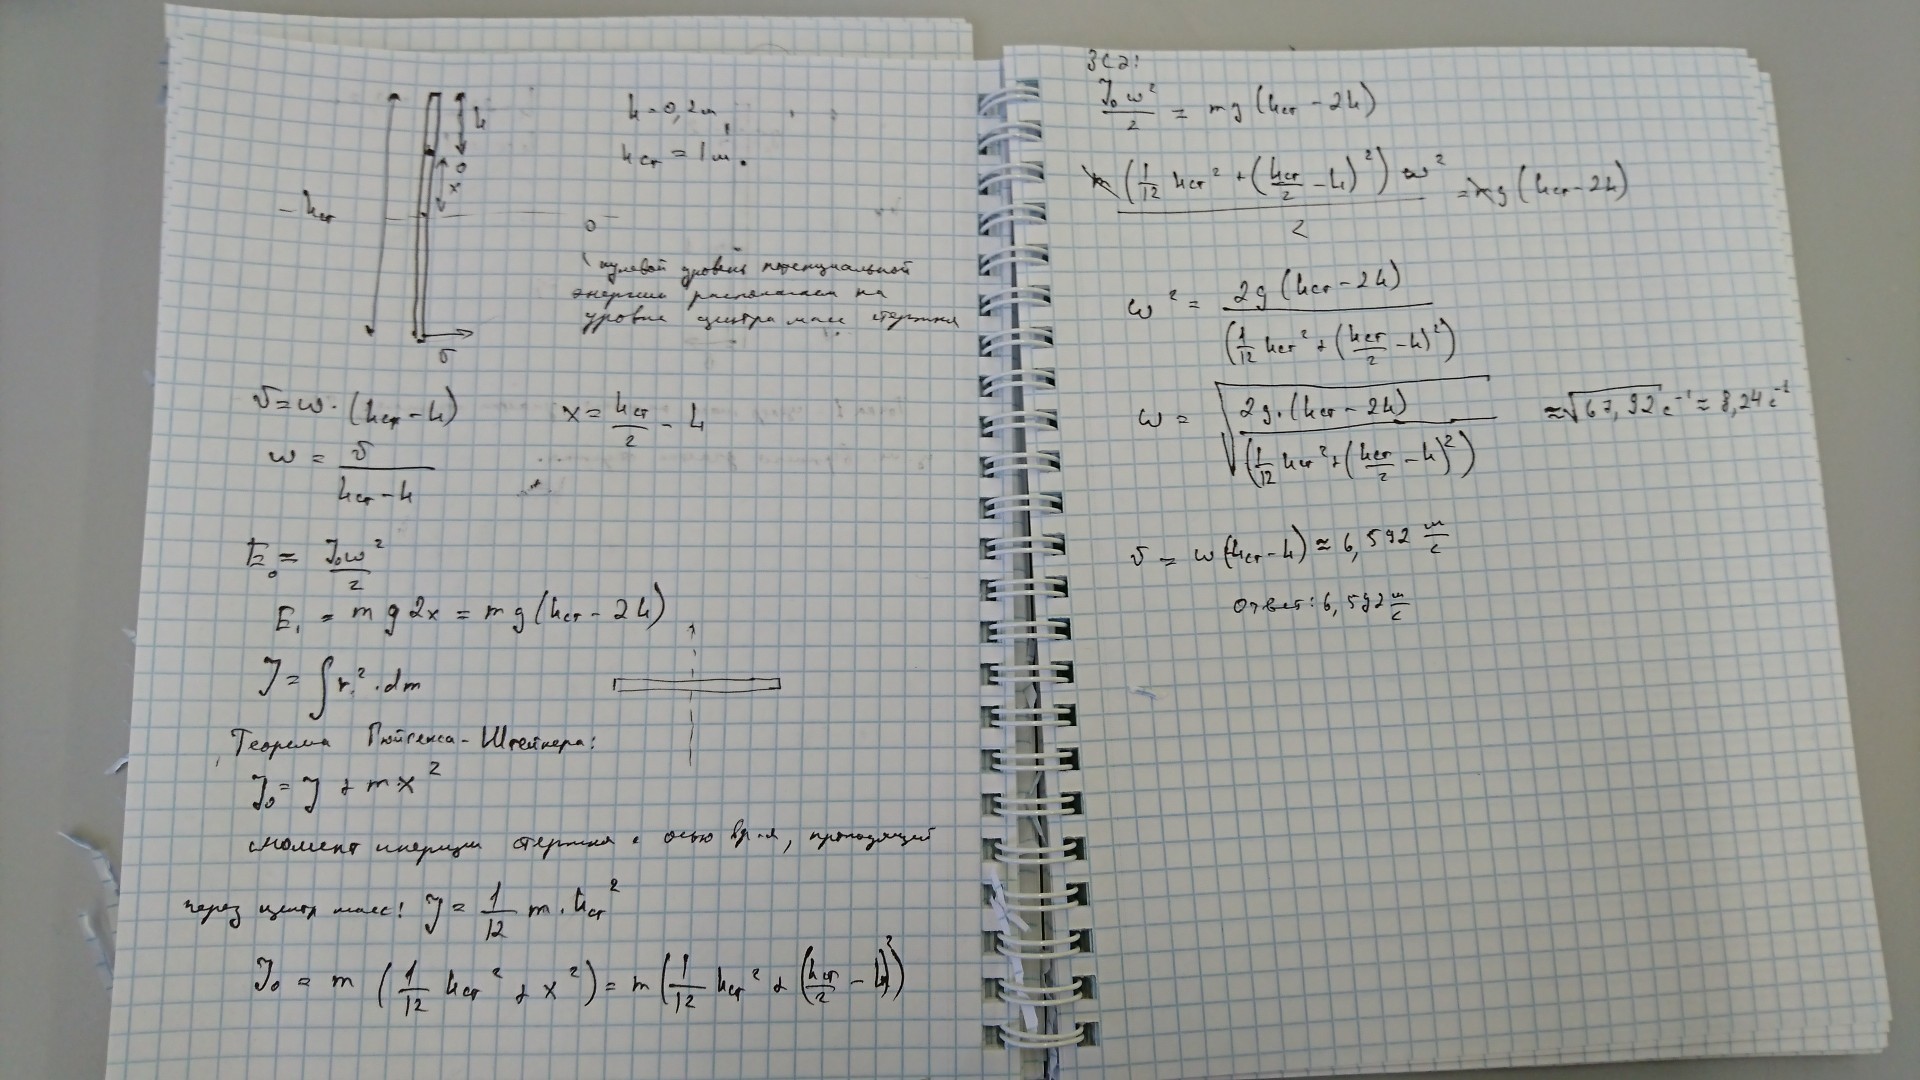 h
0
x
h_ст
0
v
h = 0,2 м
h_ст = 1 м.
нулевой уровень потенциальной
энергии располагаем на
уровне центра масс стержня
v = ω · (h_ст - h)
x = h_ст/2 - h
ω = v/(h_ст - h)
E_0 = J_0ω²/2
E_1 = mg2x = mg(h_ст - 2h)
J = ∫ r² · dm
Теорема Гюйгенса-Штейнера:
J_0 = J + mx²
момент инерции стержня с осью вр-я, проходящей
через центр масс: J = 1/12 m · h_ст²
J_0 = m (1/12 h_ст² + x²) = m(1/12 h_ст² + (h_ст/2 - h)²)
ЗСЭ:
J_0ω²/2 = mg(h_ст - 2h)
m(1/12 h_ст² + (h_ст/2 - h)²) ω²/2 = mg(h_ст - 2h)
ω² = 2g(h_ст - 2h)/(1/12 h_ст² + (h_ст/2 - h)²)
ω = √(2g·(h_ст - 2h)/(1/12 h_ст² + (h_ст/2 - h)²)) ≈ √67,92 c⁻¹ ≈ 8,24 c⁻¹
v = ω(h_ст - h) ≈ 6,592 м/с
Ответ: 6,592 м/с